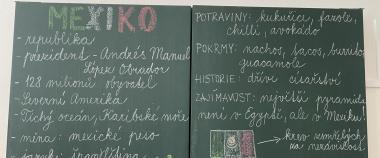 MEXIKO
- republika
- prezident - Andrés Manuel
López Obrador
- 128 milionů obyvatel
- Severní Amerika
- Tichý oceán, Karibské moře
- měna: mexické peso
- jazyk: španělština
POTRAVINY: kukuřice, fazole,
chilli, avokádo
POKRMY: nachos, tacos, burritos
guacamole
HISTORIE: dříve císařství
ZAJÍMAVOST: největší pyramida
není v Egyptě, ale v Mexiku!
krev zemřelých
za nezávislost